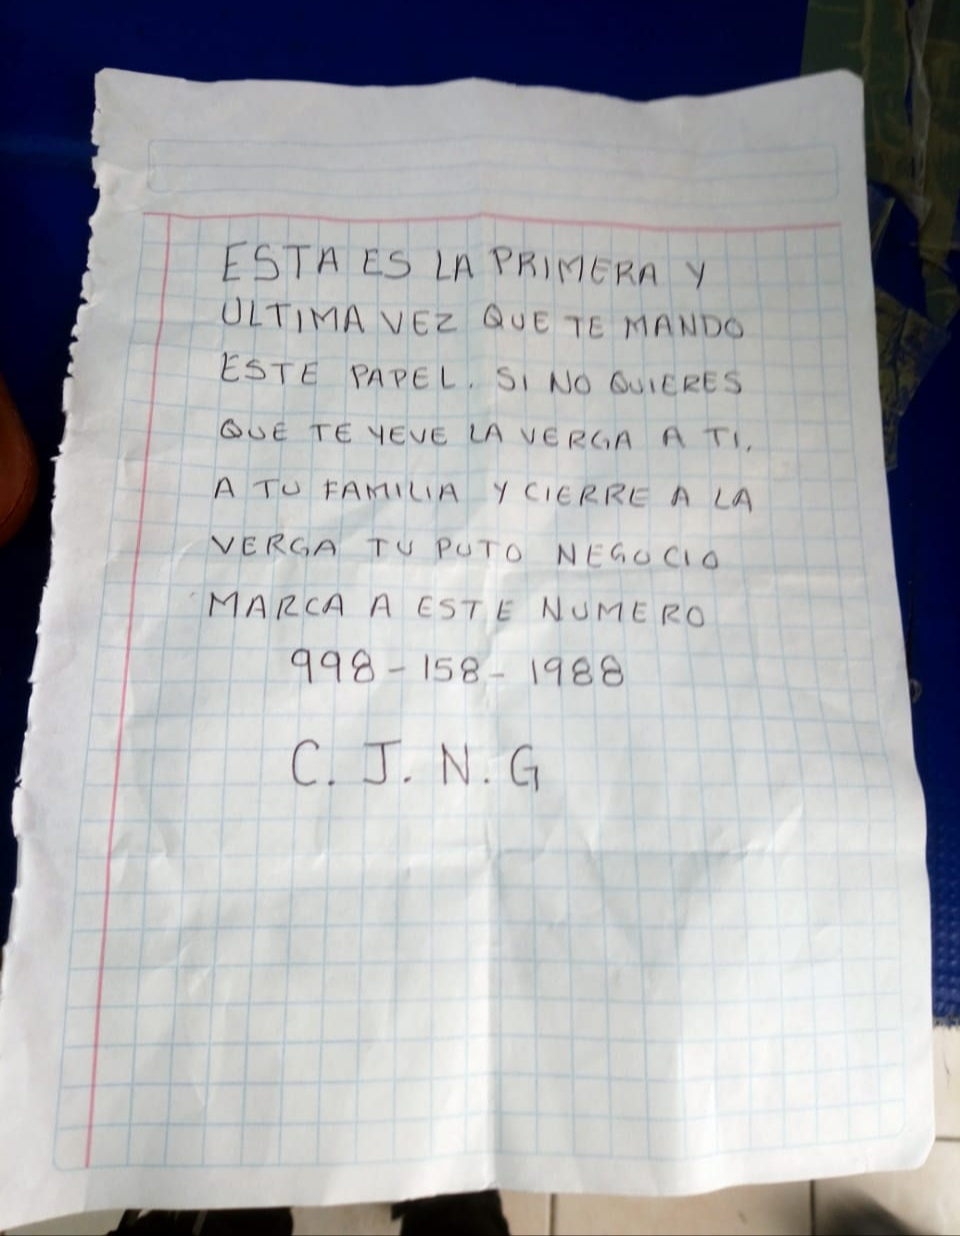 ESTA ES LA PRIMERA Y
ULTIMA VEZ QUE TE MANDO
ESTE PAPEL. SI NO QUIERES
QUE TE YEVE LA VERGA A TI,
A TU FAMILIA Y CIERRE A LA
VERGA TU PUTO NEGOCIO
MARCA A ESTE NUMERO
998-158-1988
C. J. N. G